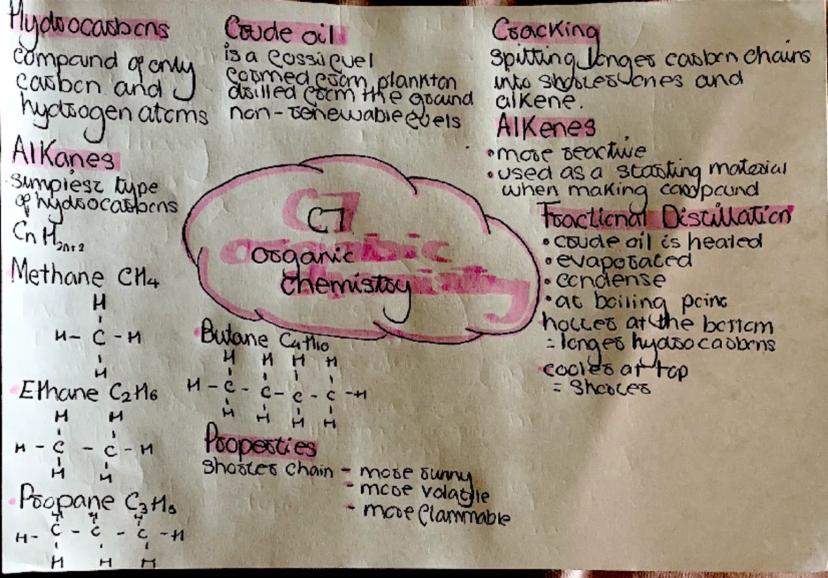 Hydrocarbons
compound of only
carbon and
hydrogen atoms
Alkanes
simplest type
of hydrocarbons
CnH2n+2
Methane CH4
H
H - C - H
H
Ethane C2H6
H H
H - C - C - H
H H
Propane C3H8
H H H
H - C - C - C - H
H H H
Crude oil
is a fossil fuel
formed from plankton
drilled form the ground
non-renewable fuels
C7
organic
chemistry
Butane C4H10
H H H H
H - C - C - C - C - H
H H H H
Properties
shorter chain - more runny
- more volatile
- more flammable
Cracking
spitting longer carbon chains
into shorter ones and
alkene.
Alkenes
• more reactive
• used as a starting material
when making compound
Fractional Distillation
• crude oil is heated
• evaporated
• condense
• at boiling point
hotter at the bottom
= longer hydrocarbons
cooler at top
= shorter